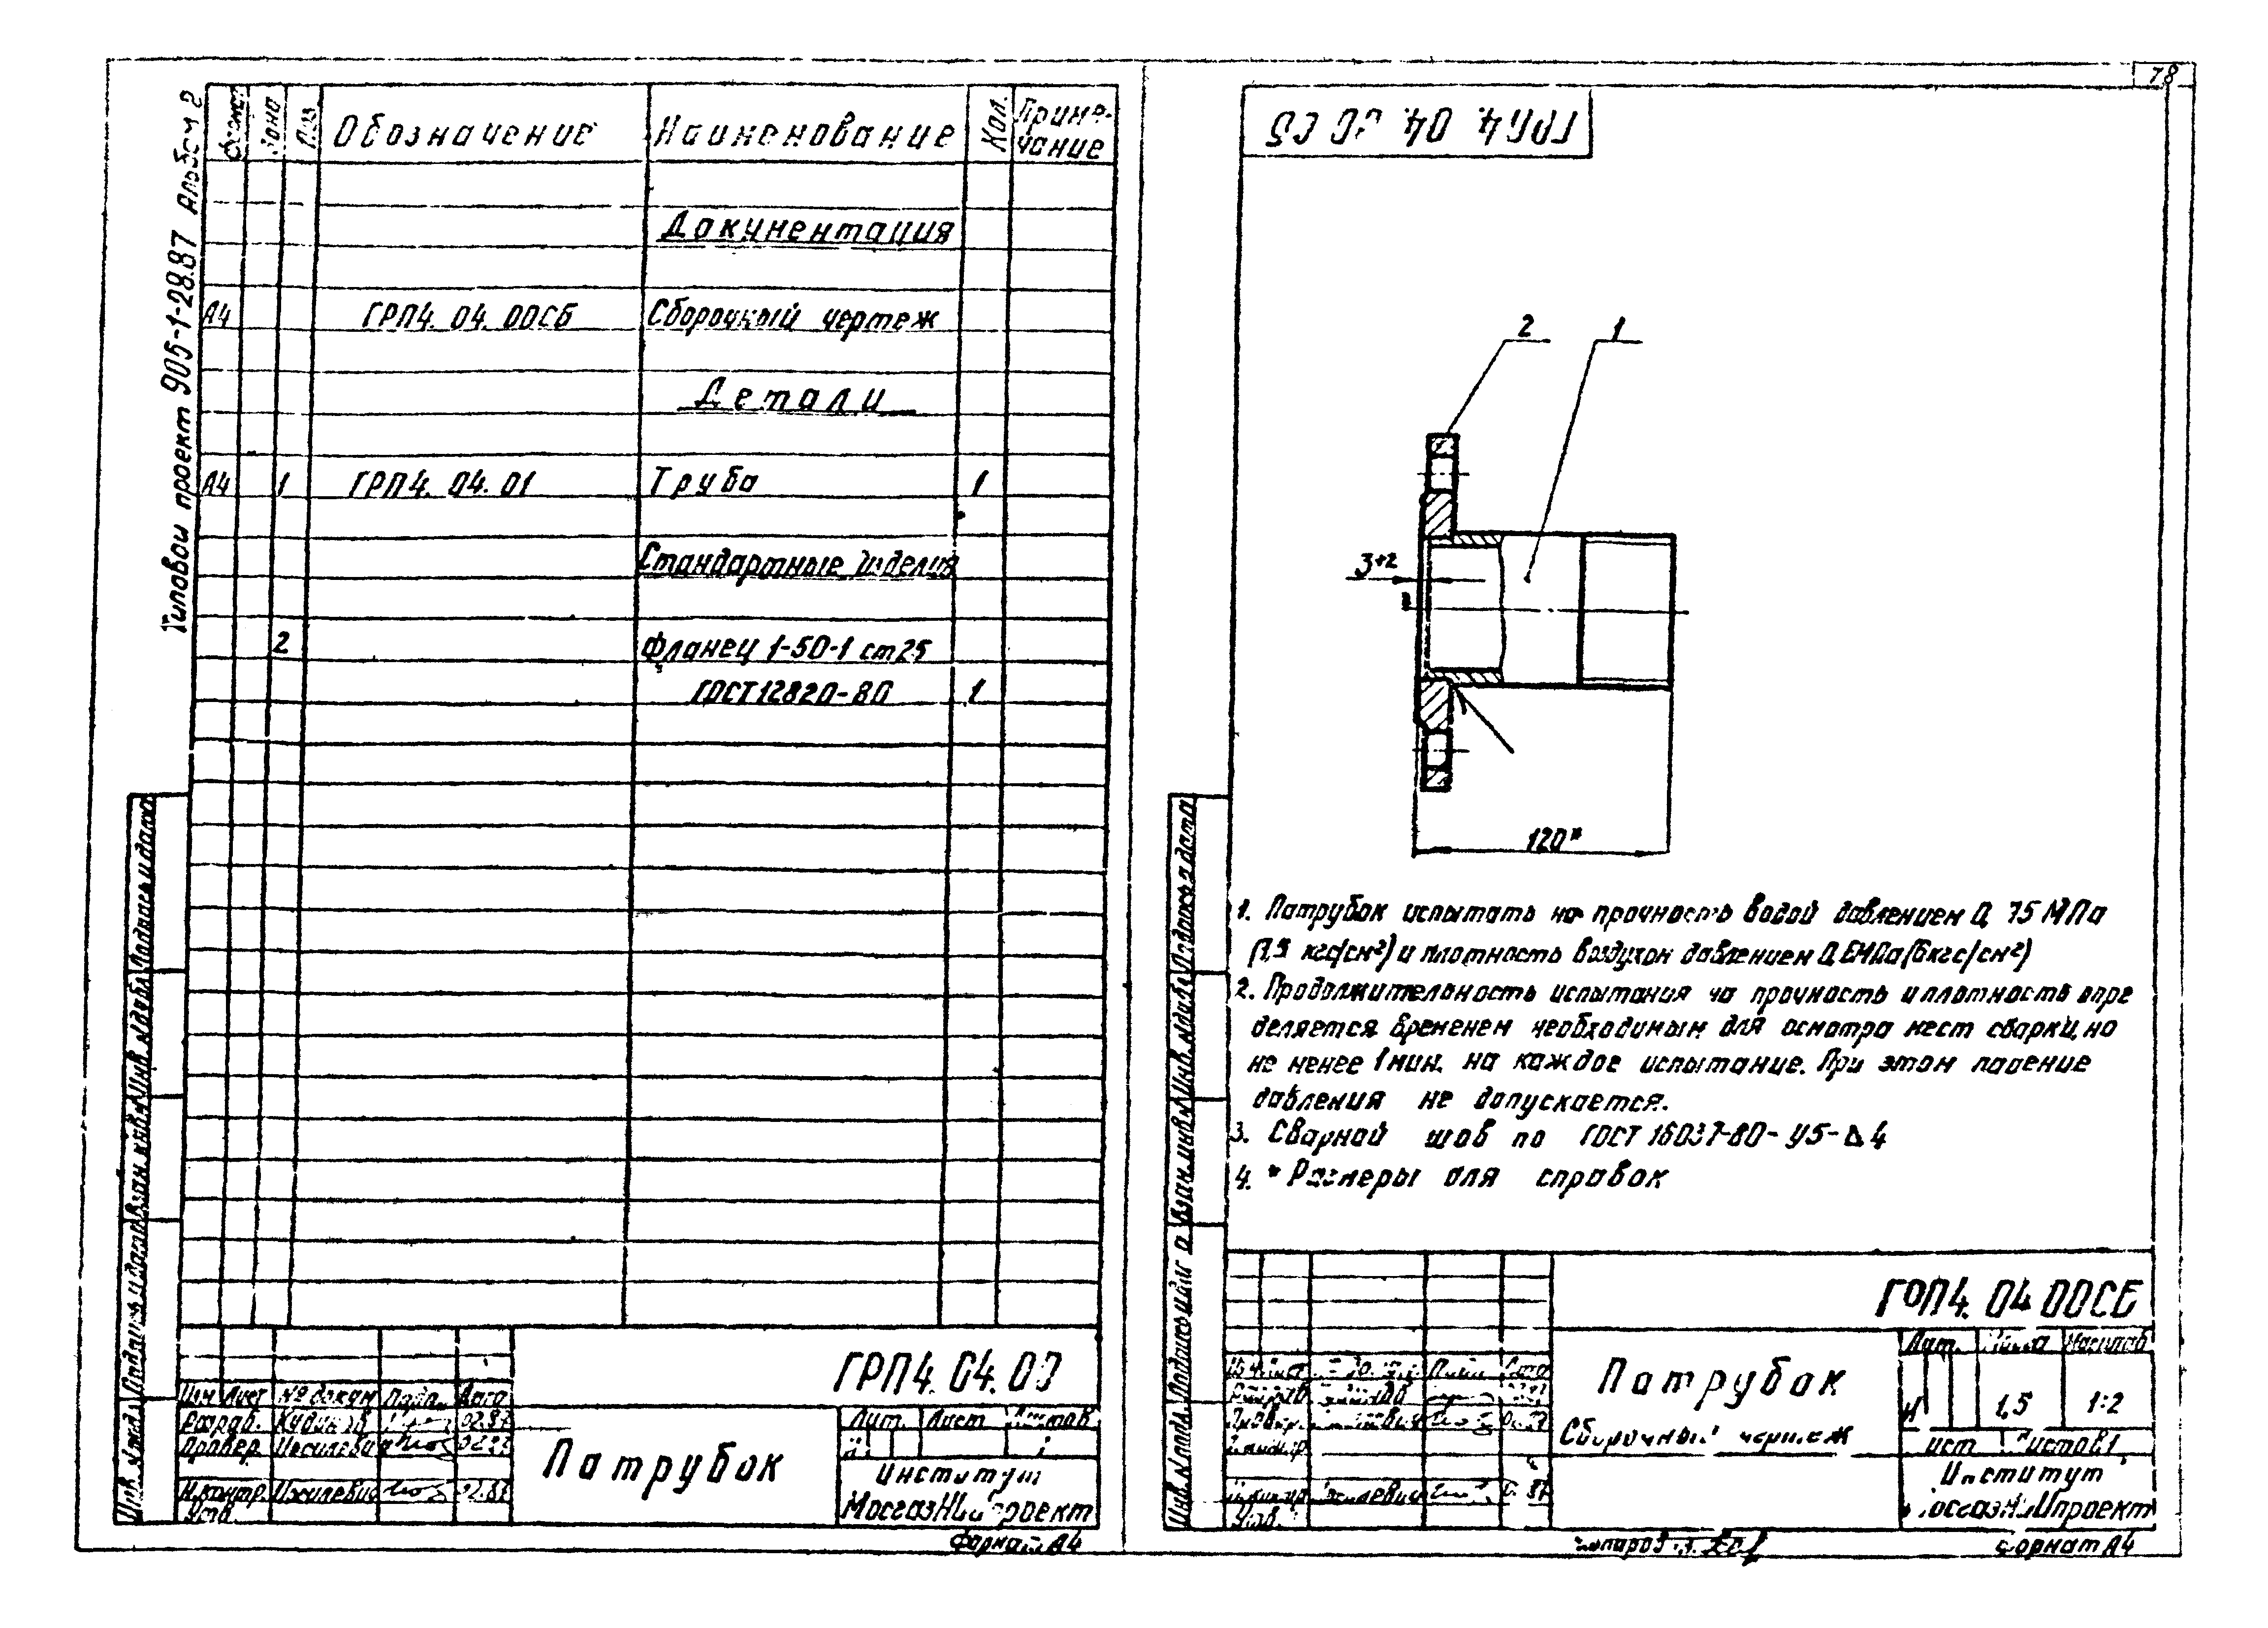 78
Типовой проект 905-1-28.87 Альбом 2
Формат Зона Поз Обозначение Наименование Кол. Приме-
чание
Документация
А4 ГРП4. 04. 00СБ Сборочный чертеж
Детали
А4 1 ГРП4. 04. 01 Труба 1
Стандартные изделия
2 Фланец 1-50-1 ст25
ГОСТ 12820-80 1
ГРП4. 04. 00
Изм Лист № докум Подп. Дата
Разраб. 02.87
Провер. 02.87
Н.контр. 02.87
Утв.
Патрубок
Лит. Лист Листов
И 1
Институт
МосгазНИИпроект
Формат А4
Инв. № подл. Подпись и дата Взам. инв. № Инв. № дубл. Подпись и дата
ГРП4. 04. 00 СБ
2 1
3+2
120*
1. Патрубок испытать на прочность водой давлением 0,75 МПа
(7,5 кгс/см²) и плотность воздухом давлением 0,6МПа (6кгс/см²)
2. Продолжительность испытания на прочность и плотность опре
деляется временем необходимым для осмотра мест сварки, но
не менее 1 мин. на каждое испытание. При этом падение
давления не допускается.
3. Сварной шов по ГОСТ 16037-80-У5-⊿4
4. * Размеры для справок
ГРП4. 04 00СБ
Патрубок
Сборочный чертеж
Лит. Масса Масштаб
И 1,5 1:2
Лист Листов 1
Институт
МосгазНИИпроект
Провер.
Н.контр. 87
Утв.
Инв. № подл. Подпись и дата Взам. инв. № Инв. № дубл. Подпись и дата
Копировал
Формат А4